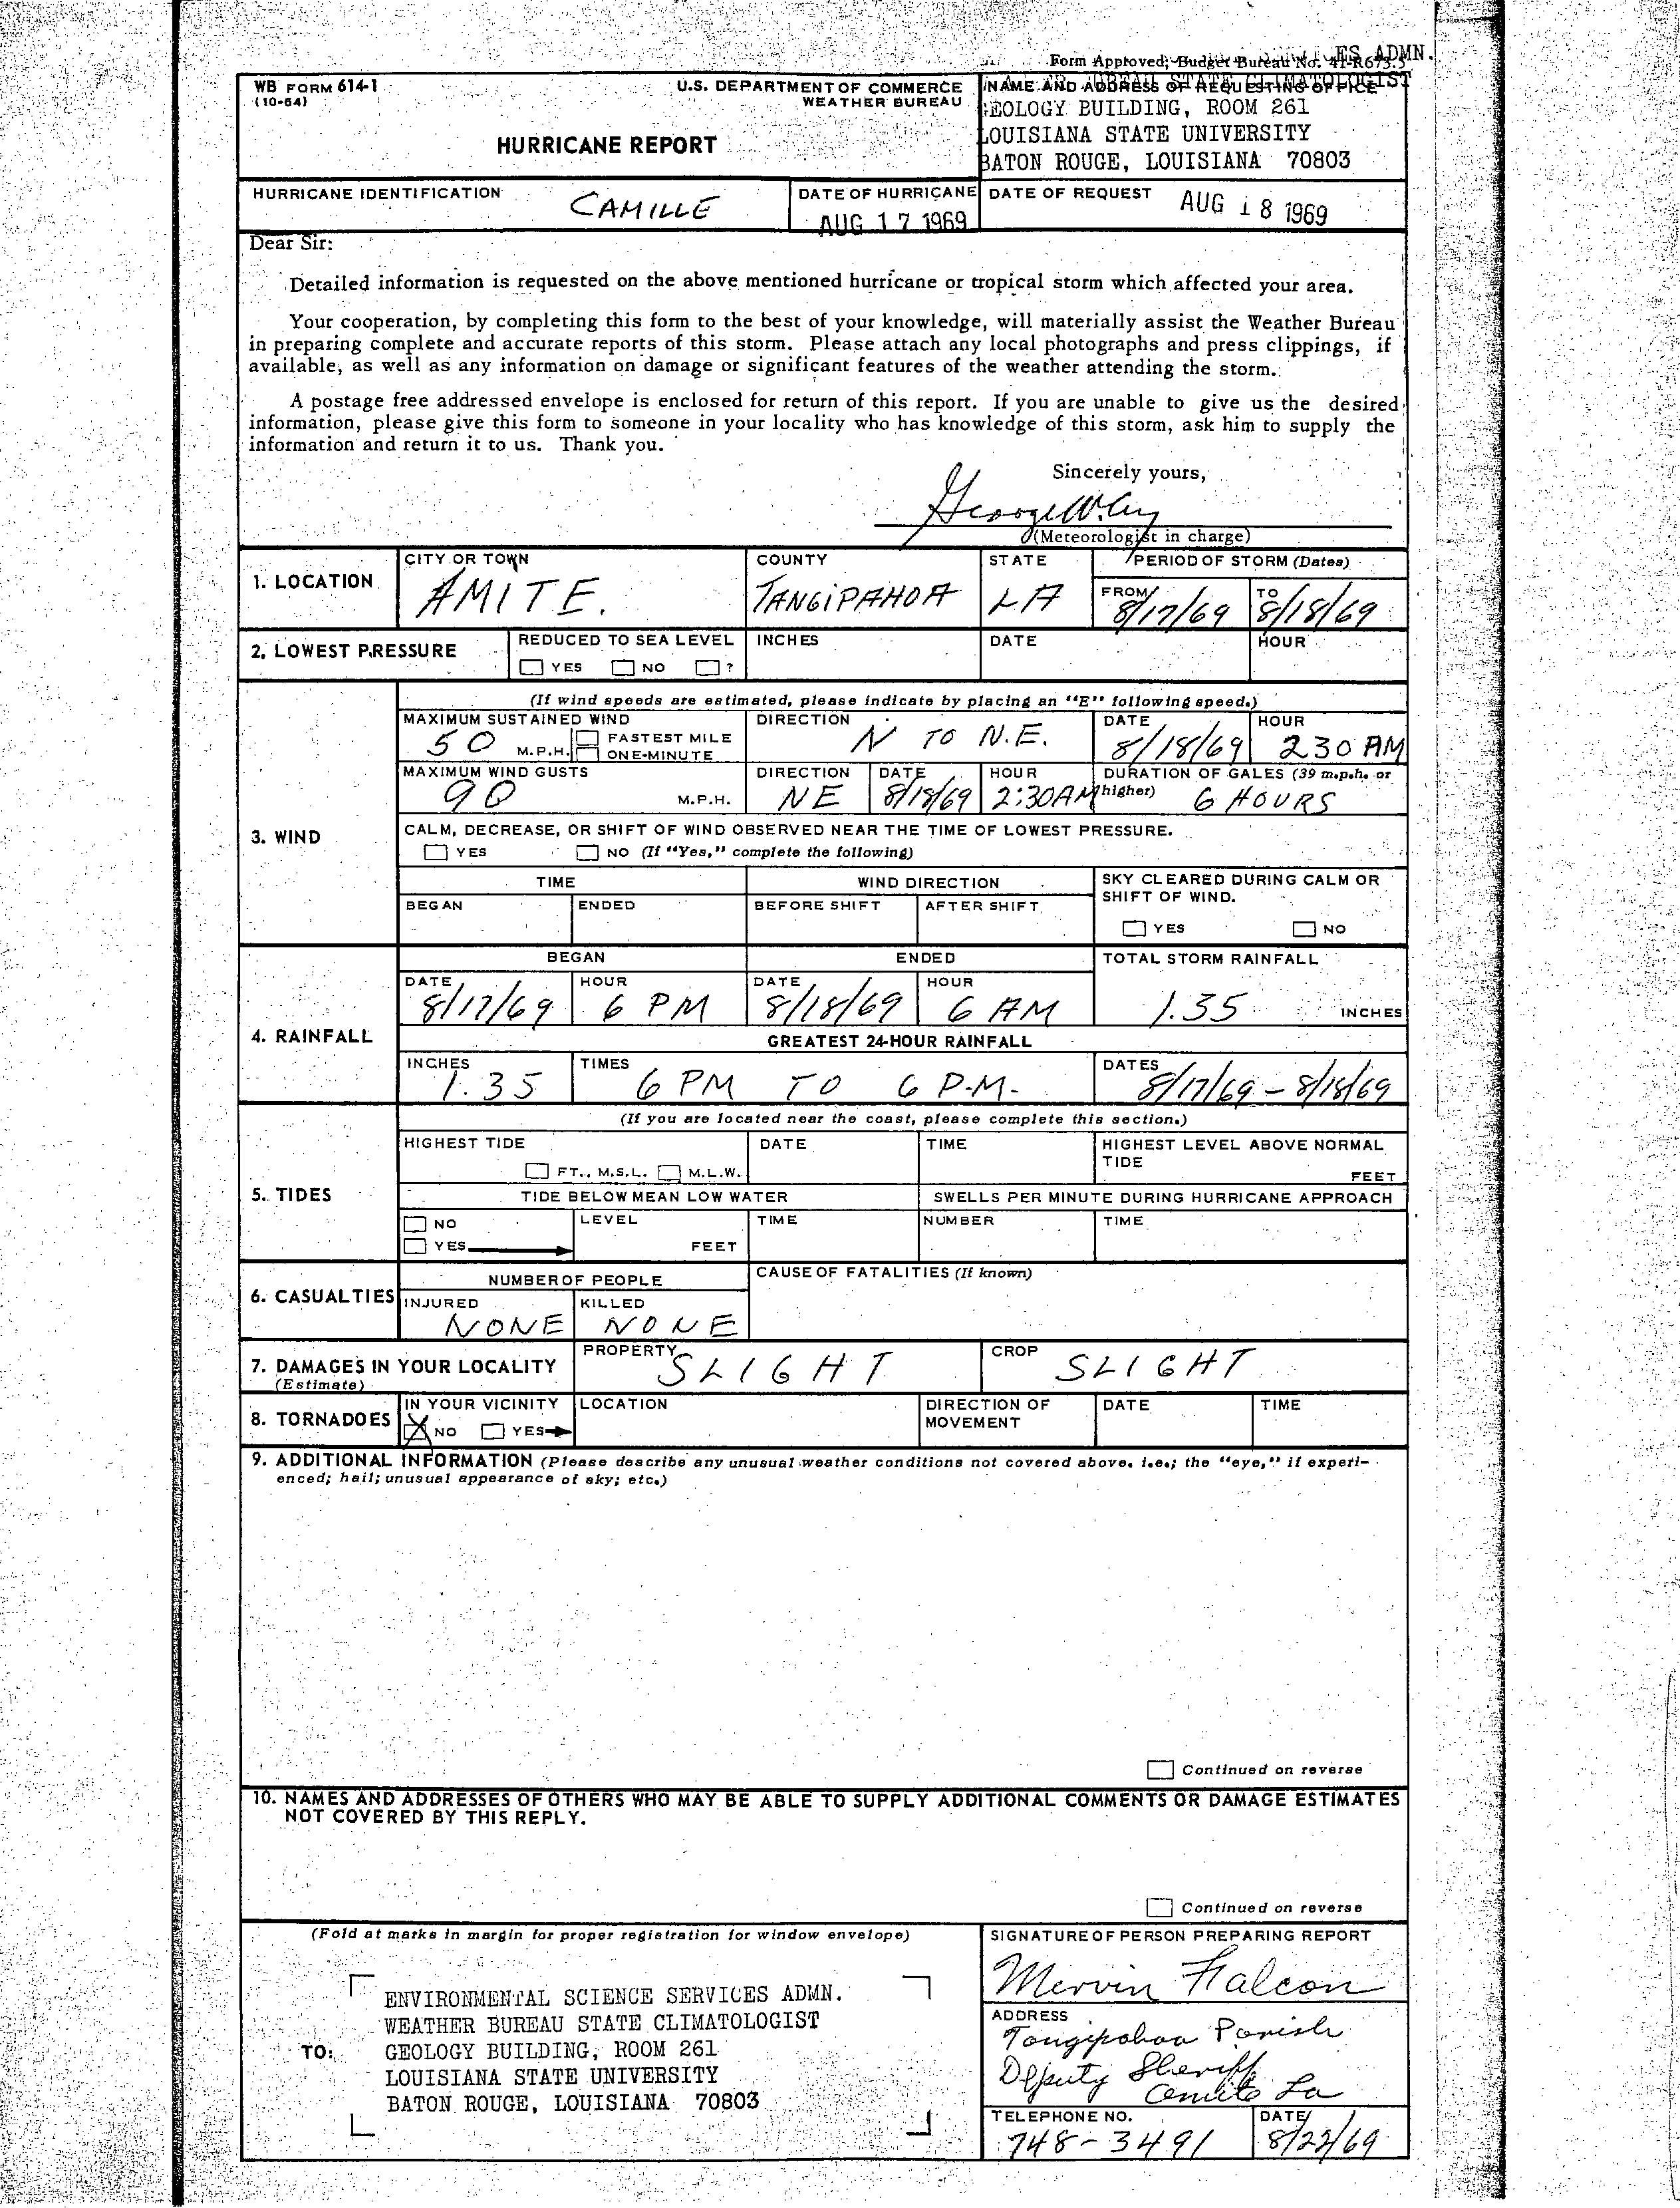 Form Approved; Budget Bureau No. 41-R673.5
ES ADMN.
WB FORM 614-1
(10-64)
U.S. DEPARTMENT OF COMMERCE
WEATHER BUREAU
HURRICANE REPORT
NAME AND ADDRESS OF REQUESTING OFFICE
STATE CLIMATOLOGIST
GEOLOGY BUILDING, ROOM 261
LOUISIANA STATE UNIVERSITY
BATON ROUGE, LOUISIANA 70803
HURRICANE IDENTIFICATION CAMILLE
DATE OF HURRICANE AUG 17 1969
DATE OF REQUEST AUG 18 1969
Dear Sir:
Detailed information is requested on the above mentioned hurricane or tropical storm which affected your area.
Your cooperation, by completing this form to the best of your knowledge, will materially assist the Weather Bureau
in preparing complete and accurate reports of this storm. Please attach any local photographs and press clippings, if
available, as well as any information on damage or significant features of the weather attending the storm.
A postage free addressed envelope is enclosed for return of this report. If you are unable to give us the desired
information, please give this form to someone in your locality who has knowledge of this storm, ask him to supply the
information and return it to us. Thank you.
Sincerely yours,
George W.
(Meteorologist in charge)
1. LOCATION
CITY OR TOWN AMITE.
COUNTY TANGIPAHOA
STATE LA
PERIOD OF STORM (Dates)
FROM 8/17/69
TO 8/18/69
2. LOWEST PRESSURE
REDUCED TO SEA LEVEL
YES NO ?
INCHES
DATE
HOUR
3. WIND
(If wind speeds are estimated, please indicate by placing an "E" following speed.)
MAXIMUM SUSTAINED WIND
50 M.P.H.
FASTEST MILE
ONE-MINUTE
DIRECTION N TO N.E.
DATE 8/18/69
HOUR 230 AM
MAXIMUM WIND GUSTS
90 M.P.H.
DIRECTION NE
DATE 8/18/69
HOUR 2:30AM
DURATION OF GALES (39 m.p.h. or
higher) 6 HOURS
CALM, DECREASE, OR SHIFT OF WIND OBSERVED NEAR THE TIME OF LOWEST PRESSURE.
YES NO (If "Yes," complete the following)
TIME
BEGAN ENDED
WIND DIRECTION
BEFORE SHIFT AFTER SHIFT
SKY CLEARED DURING CALM OR
SHIFT OF WIND.
YES NO
4. RAINFALL
BEGAN
DATE 8/17/69
HOUR 6 PM
ENDED
DATE 8/18/69
HOUR 6 AM
TOTAL STORM RAINFALL
1.35 INCHES
GREATEST 24-HOUR RAINFALL
INCHES 1.35
TIMES 6 PM TO 6 P.M.
DATES 8/17/69 - 8/18/69
5. TIDES
(If you are located near the coast, please complete this section.)
HIGHEST TIDE
FT., M.S.L. M.L.W.
DATE
TIME
HIGHEST LEVEL ABOVE NORMAL
TIDE
FEET
TIDE BELOW MEAN LOW WATER
NO
YES
LEVEL
FEET
TIME
SWELLS PER MINUTE DURING HURRICANE APPROACH
NUMBER
TIME
6. CASUALTIES
NUMBER OF PEOPLE
INJURED NONE
KILLED NONE
CAUSE OF FATALITIES (If known)
7. DAMAGES IN YOUR LOCALITY
(Estimate)
PROPERTY SLIGHT
CROP SLIGHT
8. TORNADOES
IN YOUR VICINITY
X NO YES
LOCATION
DIRECTION OF
MOVEMENT
DATE
TIME
9. ADDITIONAL INFORMATION (Please describe any unusual weather conditions not covered above. i.e.; the "eye," if experi-
enced; hail; unusual appearance of sky; etc.)
Continued on reverse
10. NAMES AND ADDRESSES OF OTHERS WHO MAY BE ABLE TO SUPPLY ADDITIONAL COMMENTS OR DAMAGE ESTIMATES
NOT COVERED BY THIS REPLY.
Continued on reverse
(Fold at marks in margin for proper registration for window envelope)
TO:
ENVIRONMENTAL SCIENCE SERVICES ADMN.
WEATHER BUREAU STATE CLIMATOLOGIST
GEOLOGY BUILDING, ROOM 261
LOUISIANA STATE UNIVERSITY
BATON ROUGE, LOUISIANA 70803
SIGNATURE OF PERSON PREPARING REPORT
Mervin Falcon
ADDRESS
Tangipahoa Parish
Deputy Sheriff
Amite La
TELEPHONE NO.
748-3491
DATE
8/22/69